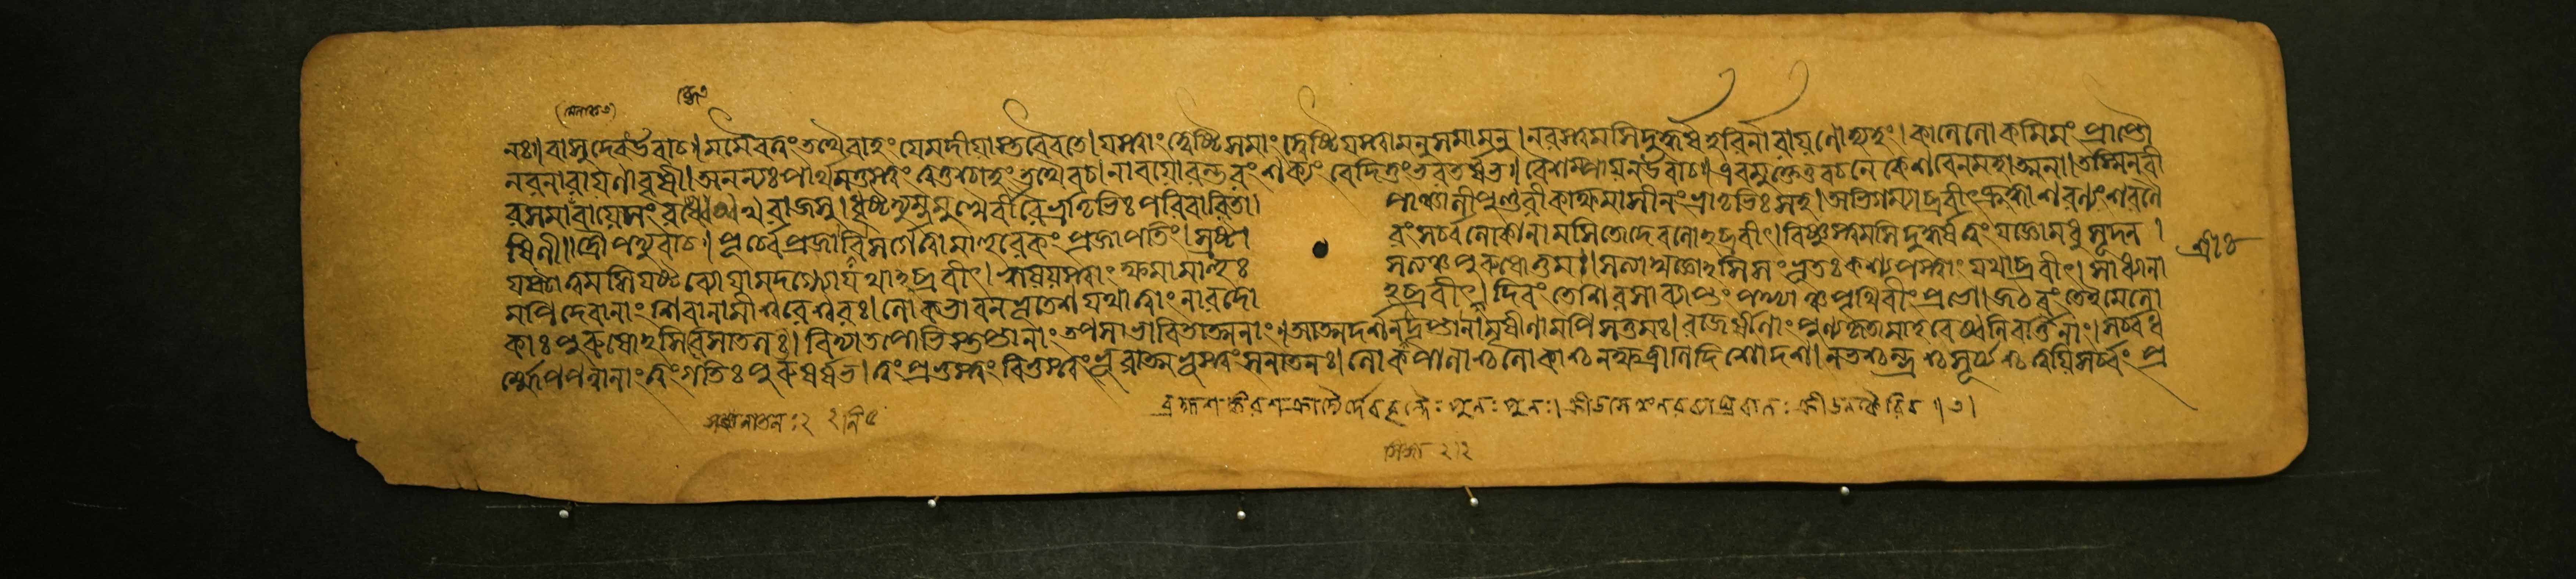 নঃ। বাসুদেব উবাচ। মমৈব ত্বং তথৈবাহং যে মদীয়াস্তবৈব তে। যস্ত্বাং দ্বেষ্টি স মাং দ্বেষ্টি যস্ত্বামনু স মামনু। নরস্ত্বমসি দুর্দ্ধর্ষ হরির্নারায়ণো হ্যহং। কালে লোকমিমং প্রাপ্তৌ
নরনারায়ণাবৃষী। অনন্যঃ পার্থ মত্তস্ত্বং ত্বত্তশ্চাহং তথৈব চ। নাবয়োরন্তরং শক্যং বেদিতুং ভরতর্ষভ। বৈশম্পায়ন উবাচ। এবমুক্তে তু বচনে কেশবেন মহাত্মনা। তস্মিন্বী
রসমাবায়ে সংরব্ধেষ্বথ রাজসু। ধৃষ্টদ্যুম্নমুখৈর্বীরৈর্ভ্রাতৃভিঃ পরিবারিতা। পাঞ্চালী পুণ্ডরীকাক্ষমাসীনং ভ্রাতৃভিঃ সহ। অভিগম্যাব্রবীৎ কৃষ্ণা শরণ্যং শরণৈ
ষিণী। দ্রৌপদ্যুবাচ। পূর্ব্বে প্রজাবিসর্গে ত্বামাহুরেকং প্রজাপতিং। স্রষ্টা রং সর্ব্বলোকানামসিতো দেবলোঽব্রবীৎ। বিষ্ণুস্ত্বমসি দুর্দ্ধর্ষ ত্বং যজ্ঞো মধুসূদন।
যষ্টা ত্বমসি যষ্টব্যো যামদগ্ন্যো যথাঽব্রবীৎ। ঋষয়স্ত্বাং ক্ষমামাহুঃ সত্যঞ্চ পুরুষোত্তমঃ। সত্যাদ্যজ্ঞোঽসি সংভূতঃ কশ্যপস্ত্বাং যথাব্রবীৎ। সাধ্যানা
মপি দেবানাং শিবানামীশ্বরেশ্বরঃ। লোকভাবন ভূতেশ যথা ত্বাং নারদো ঽব্রবীৎ। দিবং তে শিরসা ব্যাপ্তং পদ্ভ্যাঞ্চ পৃথিবীং প্রভো। জঠরং তে ইমে লো
কাঃ পুরুষোঽসি সনাতনঃ। বিদ্যাতপোভিস্তপ্তানাং তপসা ভাবিতাত্মনাং। আত্মদর্শনতৃপ্তানামৃষীণামপি সত্তমঃ। রাজর্ষীণাং পুণ্যকৃতামাহবেষ্বনিবর্ত্তিনাং। সর্ব্বধ
র্ম্মোপপন্নানাং ত্বং গতিঃ পুরুষর্ষভ। ত্বং প্রভুস্ত্বং বিভুস্ত্বং ভূরাত্মভূস্ত্বং সনাতনঃ। লোকপালাশ্চ লোকাশ্চ নক্ষত্রাণি দিশো দশ। নভশ্চন্দ্রশ্চ সূর্য্যশ্চ ত্বয়ি সর্ব্বং প্র
ব্রহ্মশঙ্করশক্রাদ্যৈর্দেববৃন্দৈঃ পুনঃ পুনঃ। ক্রীডসে ত্বং নরব্যাঘ্র বালঃ ক্রীডনকৈরিব॥৩।